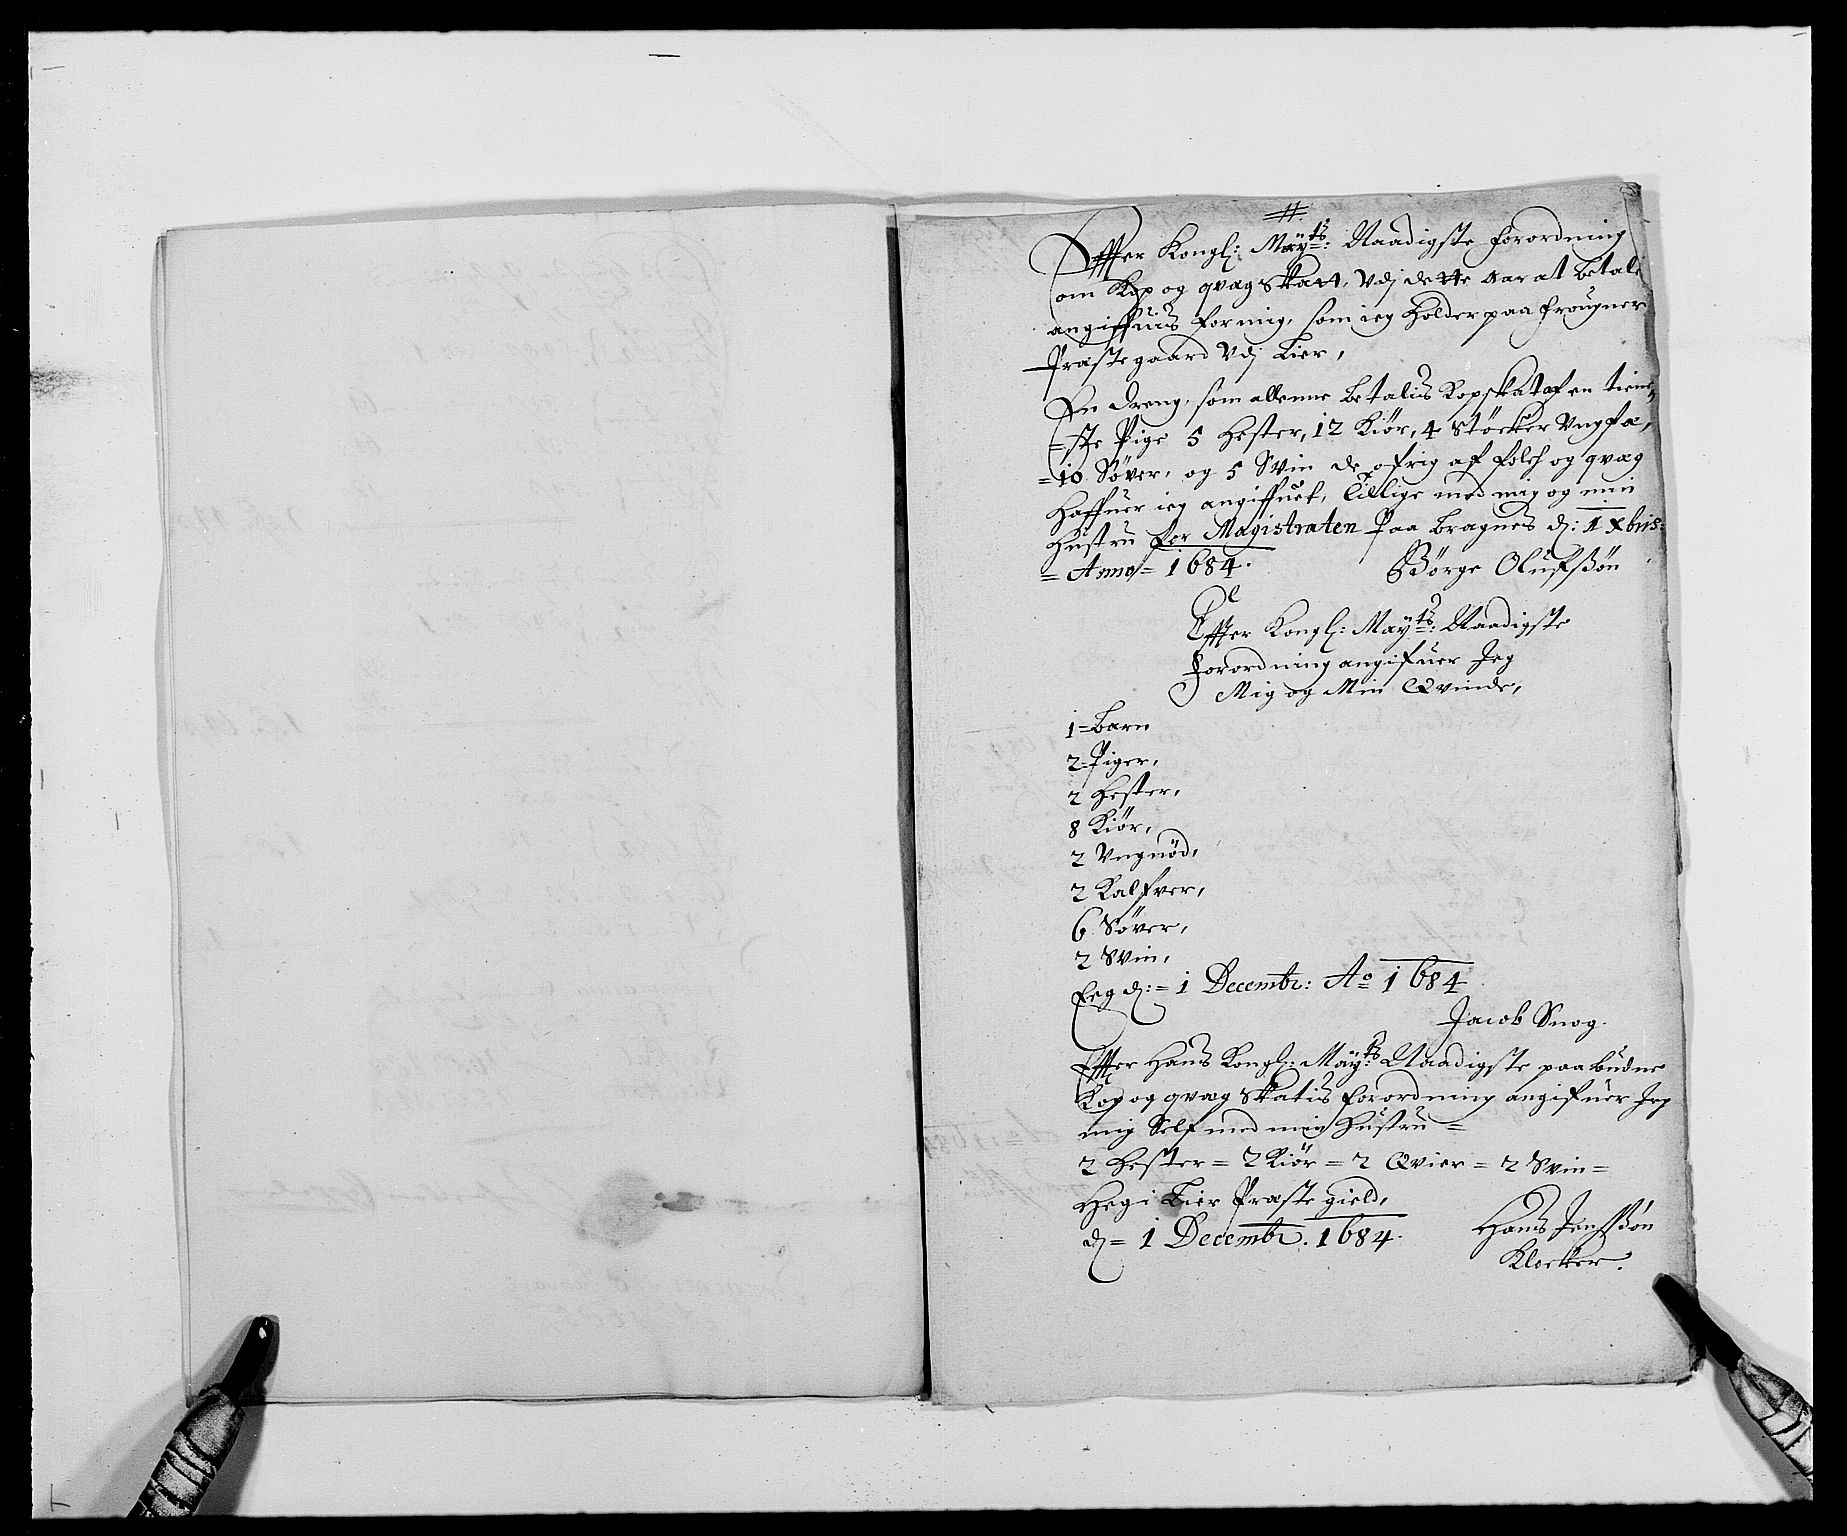 Effter Kongl: Mayts: Naadigste forordning
om Kop og qvæg Skatt, Vdj dette Aar at betale
angiffuis for mig, som ieg holder paa frougner
Præstegaard Vdj Lier,
En dreng, som allene betalis Kopskat af en tiene-
ste Pige 5 hester, 12 Kiör, 4 Støcker Vngfæ,
=10 Søver, og 5 Svin de øfrig af folch og qvæg
Haffuer ieg angiffuet, tillige med mig og min
Hustru for Magistraten Paa Bragnes d: 1 Xbris:
= Anno = 1684.
Børge Olufsøn
Effter Kongl: Mayts: Naadigste
Forordning angifuer Jeg
Mig og Min Qvinde,
1 = Barn
2 = Piger,
2 hester,
8 Kiør,
2 Vngnød,
2 Kalfver,
6 Søver,
2 Svin,
Eeg d: = 1 Decembr: Ao 1684
Jacob Snog.
Effter Hans Kongl: Mayts: Naadigste paabudne
Kop og qvæg Skatis forordning angifuer Jeg
mig Self med min Hustru =
2 hester = 2 Kiör = 2 Qvier = 2 Svin =
Heg i Lier Præstegield,
d = 1 Decembr. 1684.
Hans Jensøn
Klocker.